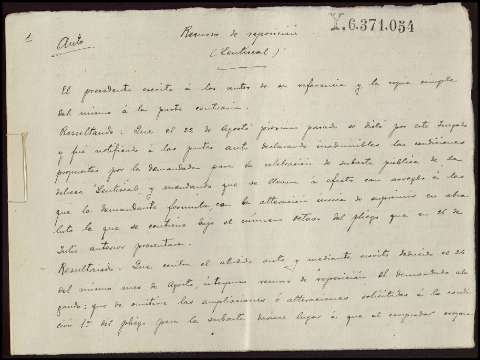 Y.6.371.054
Auto
Recurso de reposición
(Lentiscal)
El precedente escrito á los autos de su referencia y la copia simple
del mismo á la parte contraria.
Resultando: Que el 22 de Agosto próximo pasado se dictó por este Juzgado
y fué notificado á las partes auto declarando inadmisibles las condiciones
propuestas por la demandada para la celebración de subasta pública de la
dehesa "Lentiscal" y mandando que se lleven á efecto con arreglo á las
que la demandante formula, con la alteración única de suprimir en abso
luto la que se contiene bajo el número octavo del pliego que en 16 de
Julio anterior presentara.
Resultando: Que contra el aludido auto y mediante escrito deducido el 26
del mismo mes de Agosto, interpuso recurso de reposición el demandado ale
gando; que de omitirse las ampliaciones ó alteraciones solicitadas á la condi
ción 1ª del pliego para la subasta daríase lugar á que el comprador